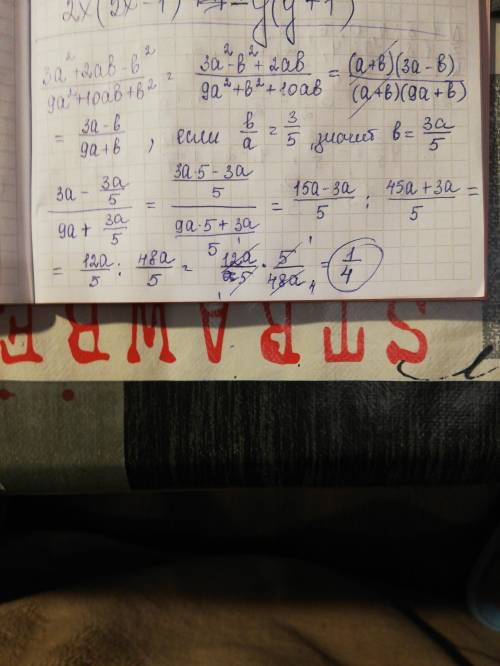 2x(2x-1) ... y(y+1)
3a²+2ab-b² / 9a²+10ab+b² = 3a²-b²+2ab / 9a²+b²+10ab = (a+b)(3a-b) / (a+b)(9a+b)
= 3a-b / 9a+b , если b/a = 3/5 , значит b = 3a/5
(3a - 3a/5) / (9a + 3a/5) = (3a·5-3a / 5) / (9a·5+3a / 5) = 15a-3a / 5 : 45a+3a / 5 =
= 12a/5 : 48a/5 = 12a/5 · 5/48a = 1/4
STRAWBE